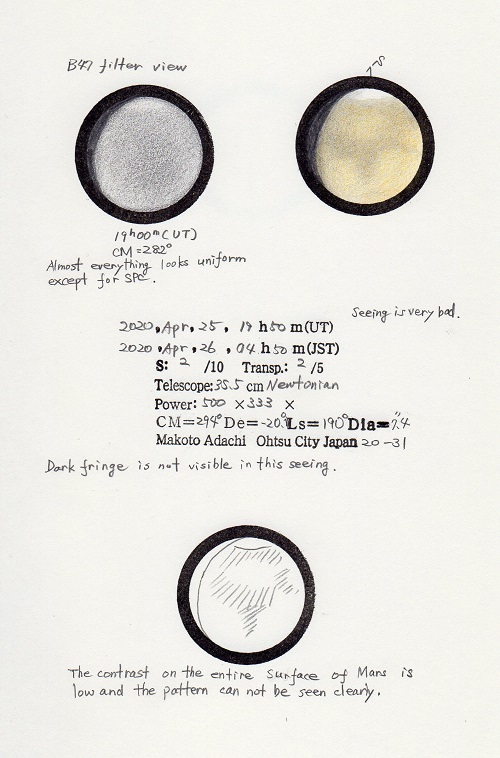 B47 filter view
S
19h00m(UT)
CM=282°
Almost everything looks uniform
except for SPC.
Seeing is very bad.
2020, Apr, 25, 19 h 50 m(UT)
2020, Apr, 26, 04 h 50 m(JST)
S: 2 /10 Transp.: 2 /5
Telescope: 35.5 cm Newtonian
Power: 500 ×333 ×
CM=294° De=-20° Ls=190° Dia=7.4"
Makoto Adachi Ohtsu City Japan 20-31
Dark fringe is not visible in this seeing.
The contrast on the entire surface of Mars is
low and the pattern can not be seen clearly.